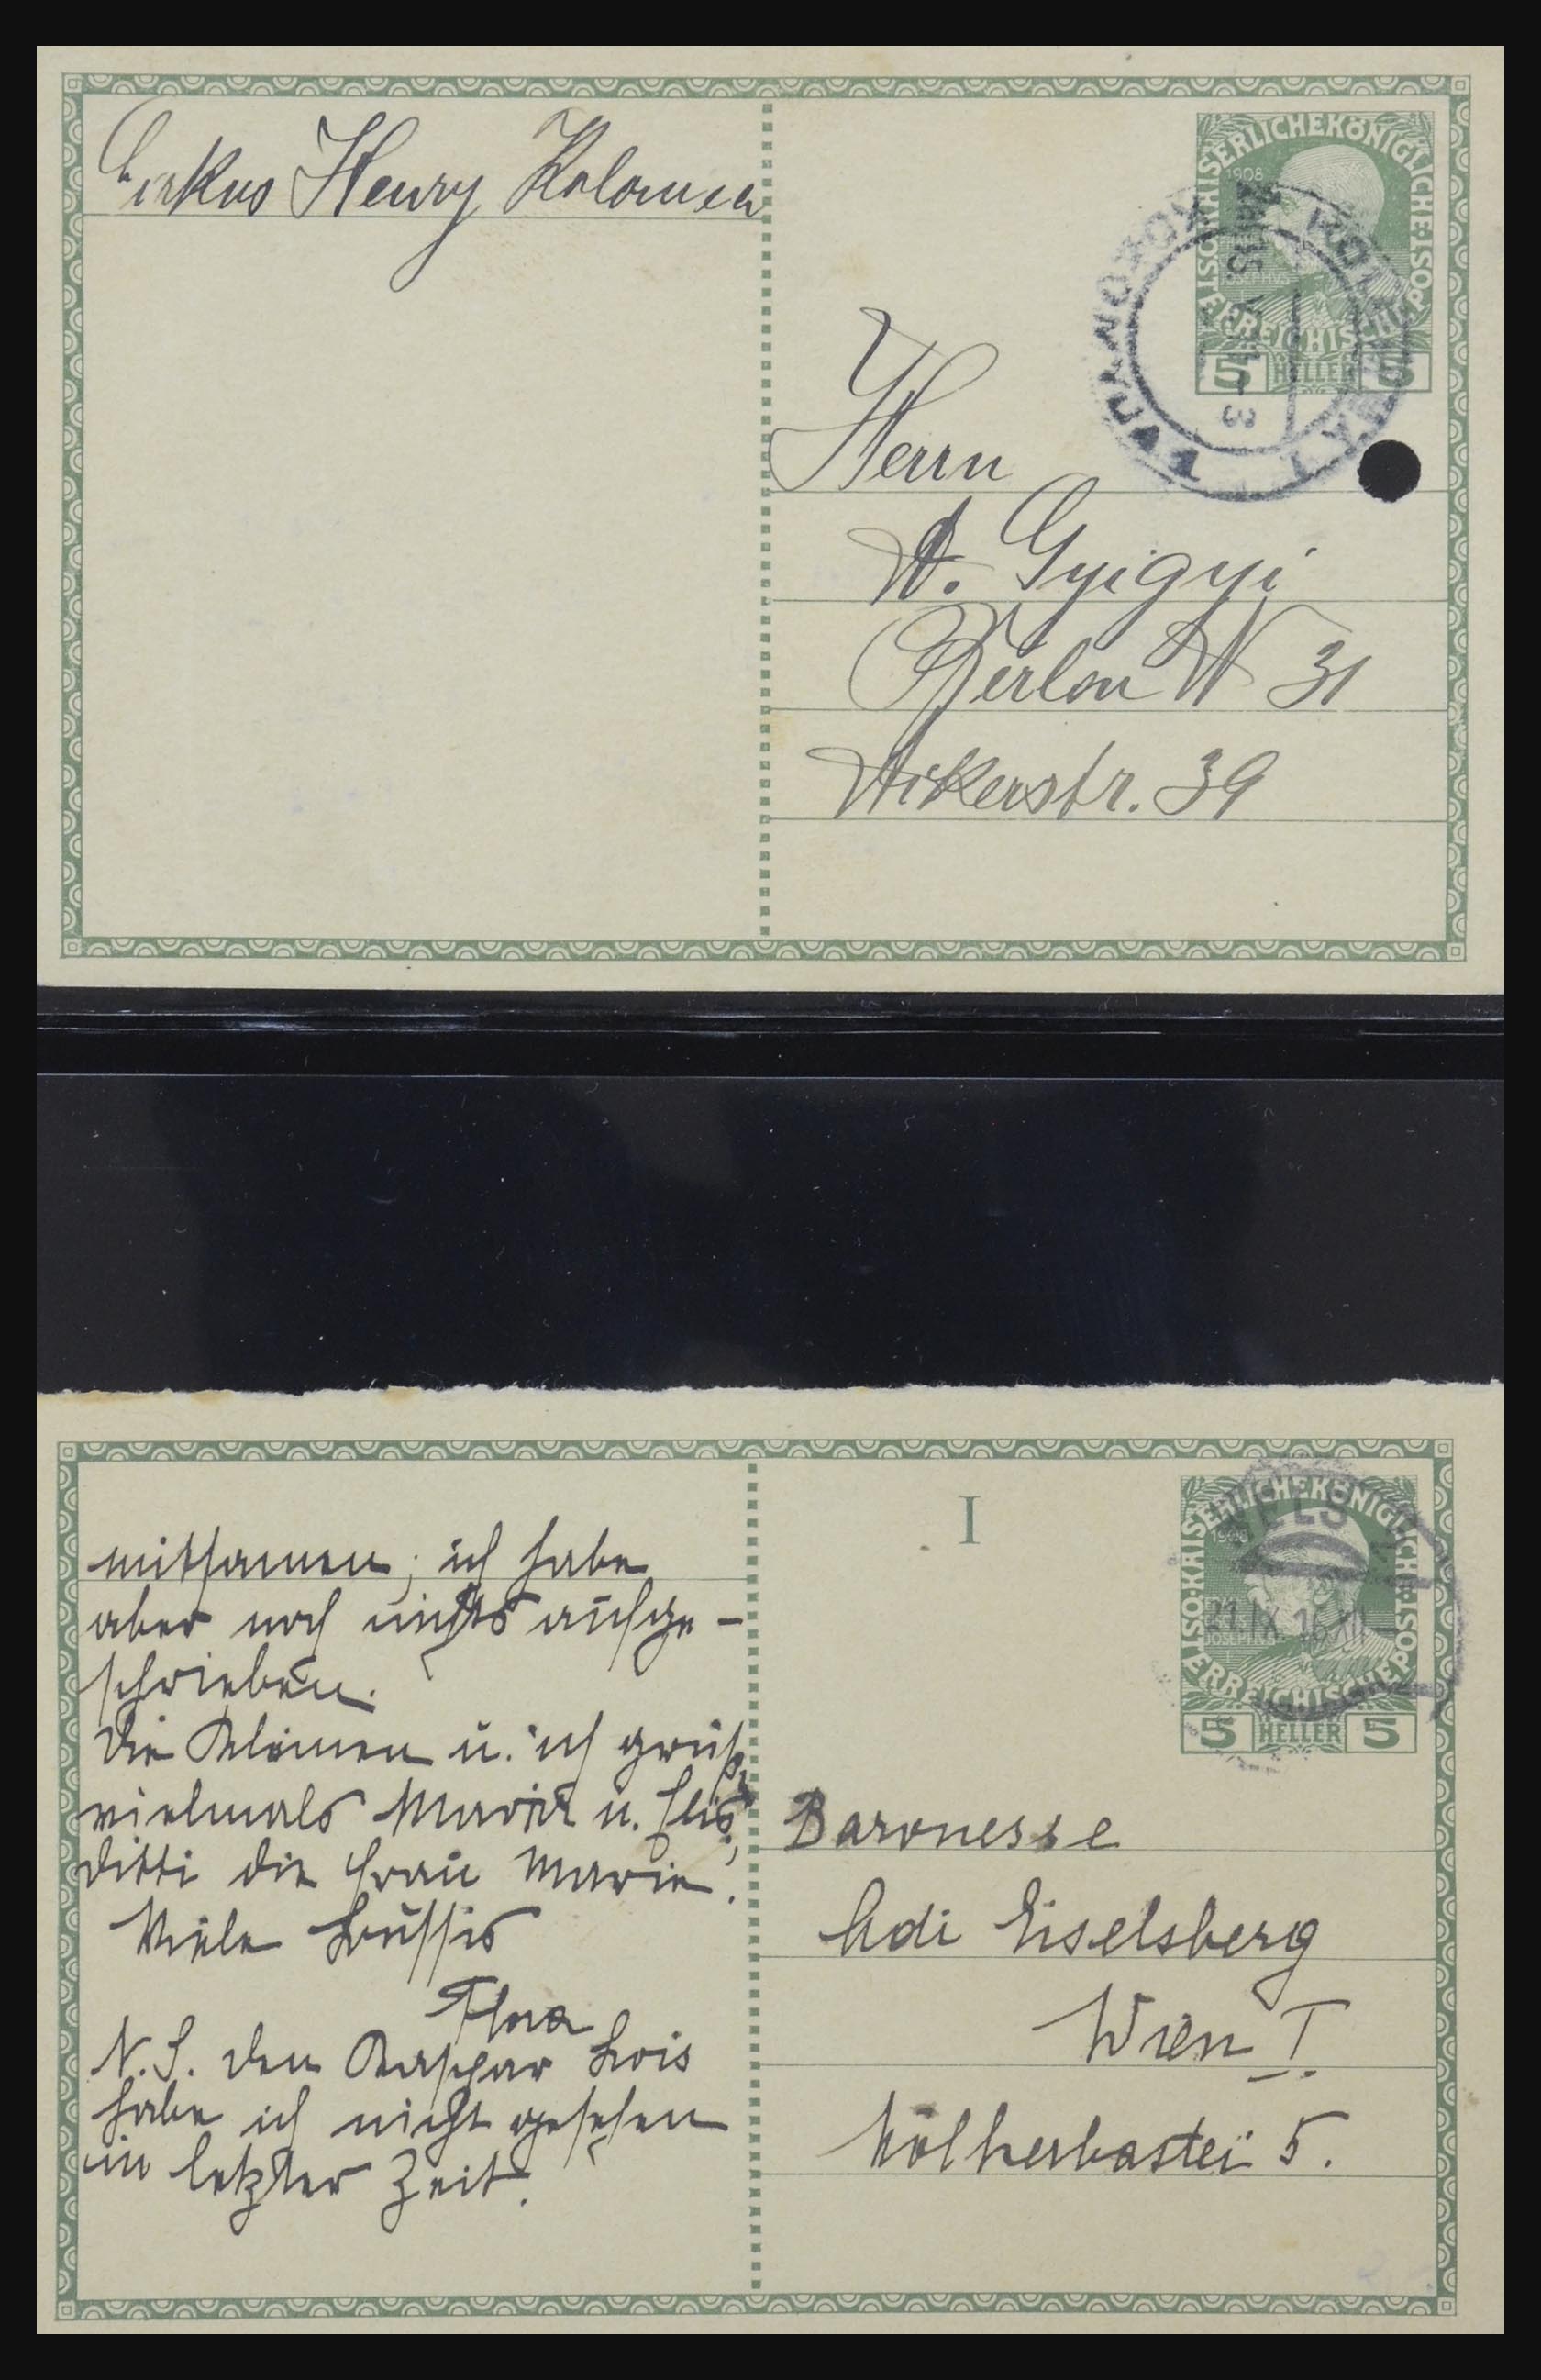 Cirkus Henry Kolomea
KAISERLICHEKÖNIGLICHE
ÖSTERREICHISCHE POST
1908
5 HELLER 5
Herrn
A. Gyigyi
Berlin N 31
39
I
KAISERLICHEKÖNIGLICHE
ÖSTERREICHISCHE POST
5 HELLER 5
WELS
21.IX.16 XII
mitsammen; ich habe
aber noch nichts aufge-
schrieben.
Die u. ich
vielmals u.
die Frau Marie.
Viele Bussis
Flora
N.S. den Kaspar Lois
habe ich nicht gesehen
in letzter Zeit.
Baronesse
Adi Eiselsberg
Wien I.
Mölkerbastei 5.